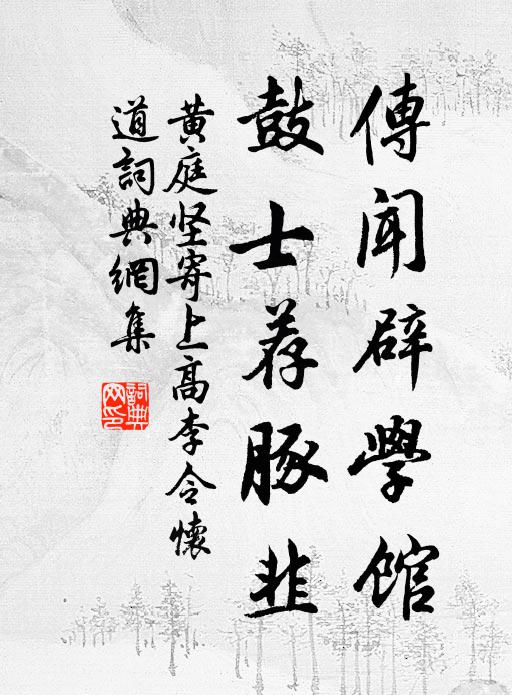 傳闻辟學館
鼓士荐豚韭
黄庭坚寄上高李令懷
道詞典網集
詞典网印